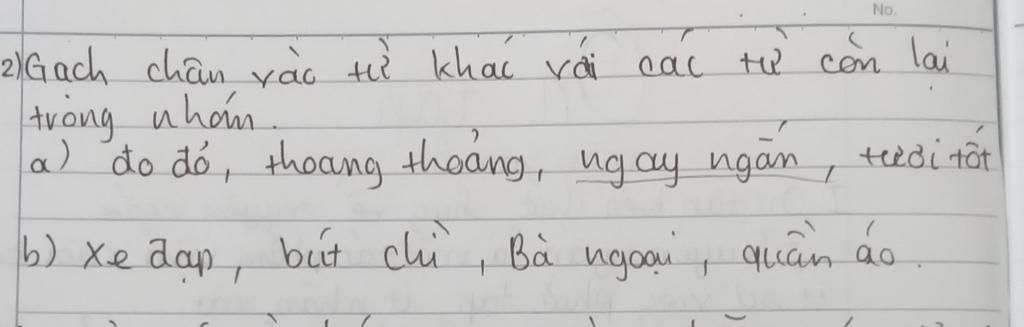 No.
2) Gạch chân vàc từ khác với các từ còn lại
tròng nhóm.
a) đo đỏ, thoang thoảng, ngay ngắn, tươi tốt
b) xe đạp, bút chì, Bà ngoại, quần áo.